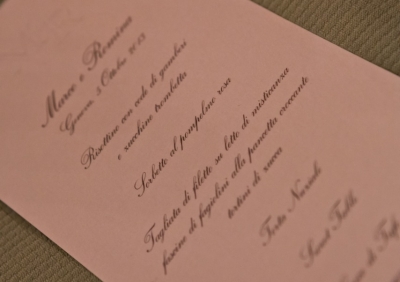 Marco e Romina
Genova, 5 Ottobre 2013
Risottino con code di gamberi
e zucchine trombetta
Sorbetto al pompelmo rosa
Tagliata di filetto su letto di misticanza
fascine di fagiolini alla pancetta croccante
tortini di zucca
Torta Nuziale
Sweet Table